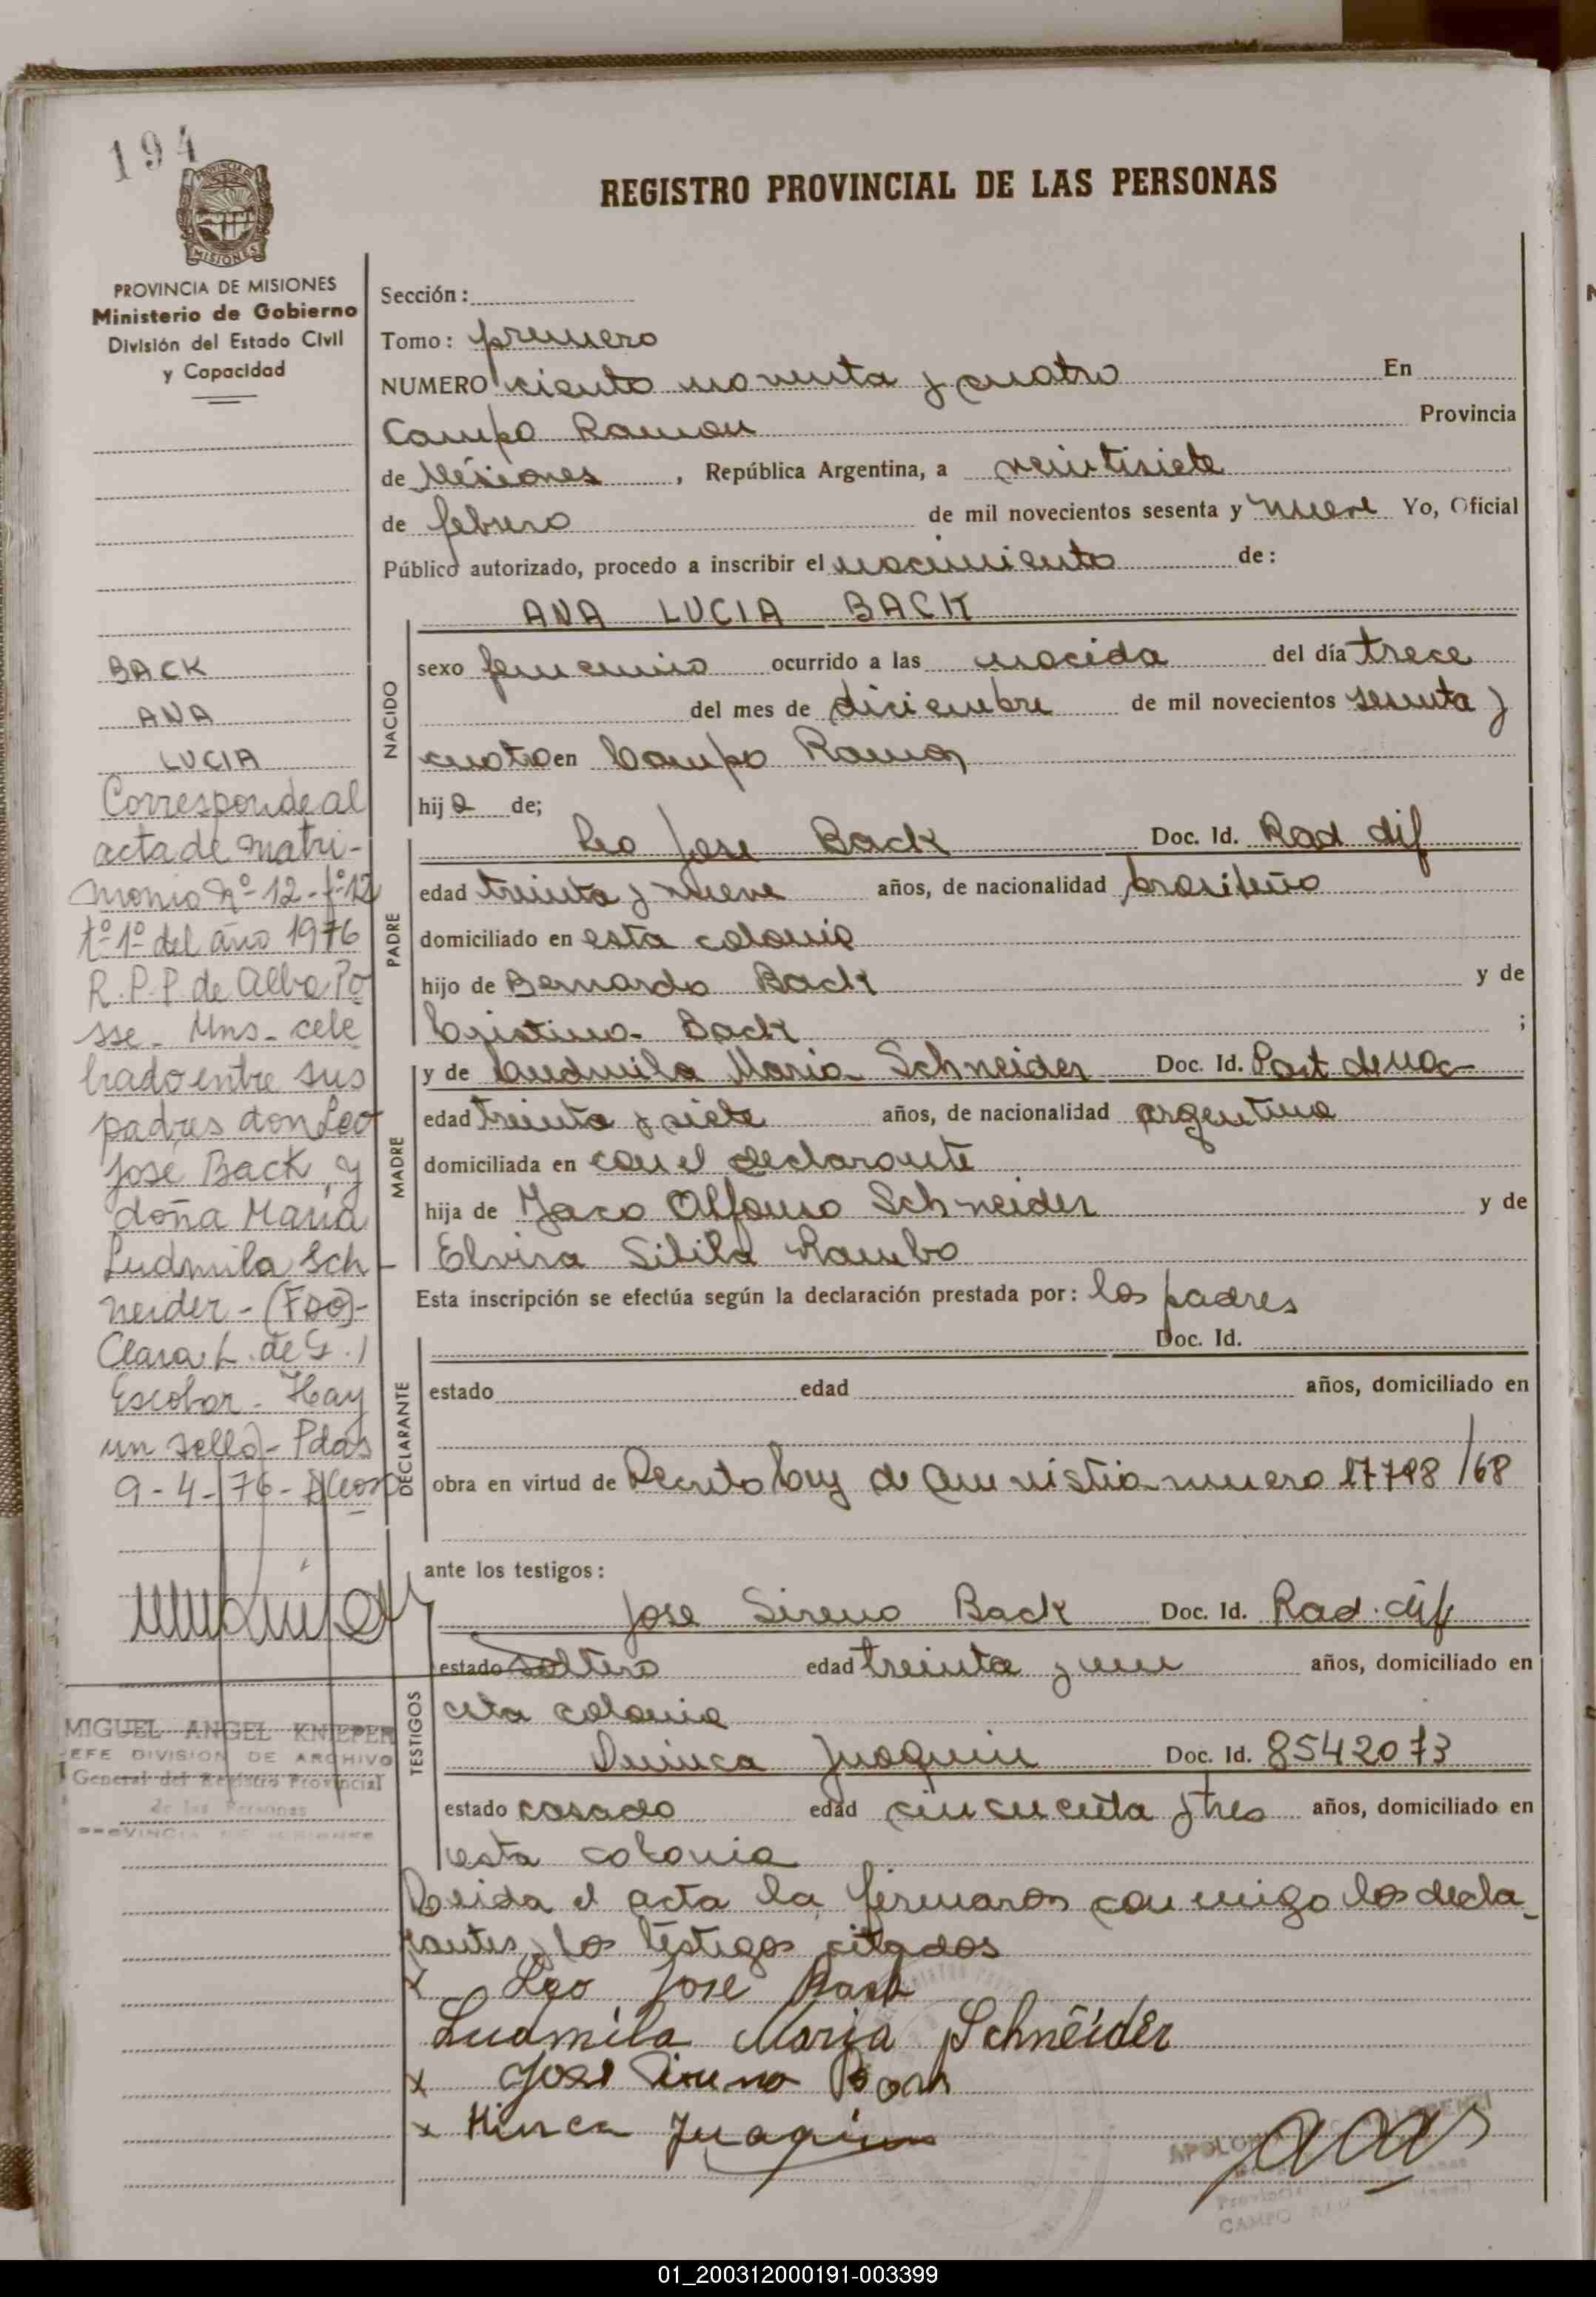 194
REGISTRO PROVINCIAL DE LAS PERSONAS
PROVINCIA DE MISIONES
Ministerio de Gobierno
División del Estado Civil
y Capacidad
BACK
ANA
LUCIA
Corresponde al
acta de matri-
monio Nº 12 - fº 12
tº 1º del año 1976
R.P.P. de Alba Po
sse - Mns - cele
brado entre sus
padres don Leo
José Back y
doña María
Ludmila Sch-
neider - (Fdo)-
Clara L. de G.
Escobar - Hay
un sello) - Pdas
9-4-76-
MIGUEL ANGEL KNIEPER
JEFE DIVISION DE ARCHIVO
General del Registro Provincial
de las Personas
PROVINCIA DE MISIONES
Sección:
Tomo: primero
NUMERO ciento noventa y cuatro En
Campo Ramon Provincia
de Misiones, República Argentina, a veintisiete
de febrero de mil novecientos sesenta y nueve Yo, Oficial
Público autorizado, procedo a inscribir el nacimiento de:
ANA LUCIA BACK
NACIDO
sexo femenino ocurrido a las nacida del día trece
del mes de diciembre de mil novecientos sesenta y
cuatro en Campo Ramon
hija de;
PADRE
Leo Jose Back Doc. Id. Rad dif
edad treinta y nueve años, de nacionalidad brasileño
domiciliado en esta colonia
hijo de Bernardo Back y de
Cristina Back ;
MADRE
y de Ludmila Maria Schneider Doc. Id. Part de nac
edad treinta y siete años, de nacionalidad argentina
domiciliada en con el declarante
hija de Jaco Alfonso Schneider y de
Elvira Sibila Rambo
Esta inscripción se efectúa según la declaración prestada por: los padres
DECLARANTE
Doc. Id.
estado edad años, domiciliado en
obra en virtud de Decreto Ley de amnistia numero 17798/68
ante los testigos:
TESTIGOS
Jose Sireno Back Doc. Id. Rad. dif
estado soltero edad treinta y un años, domiciliado en
esta colonia
Juaquin Doc. Id. 8542073
estado casado edad cincuenta y tres años, domiciliado en
esta colonia
Leida el acta la firmaron conmigo los decla
rantes y los testigos citados
x Leo Jose Back
Ludmila Maria Schneider
x Jose Sireno Back
x Juaquin
CAMPO
01_200312000191-003399